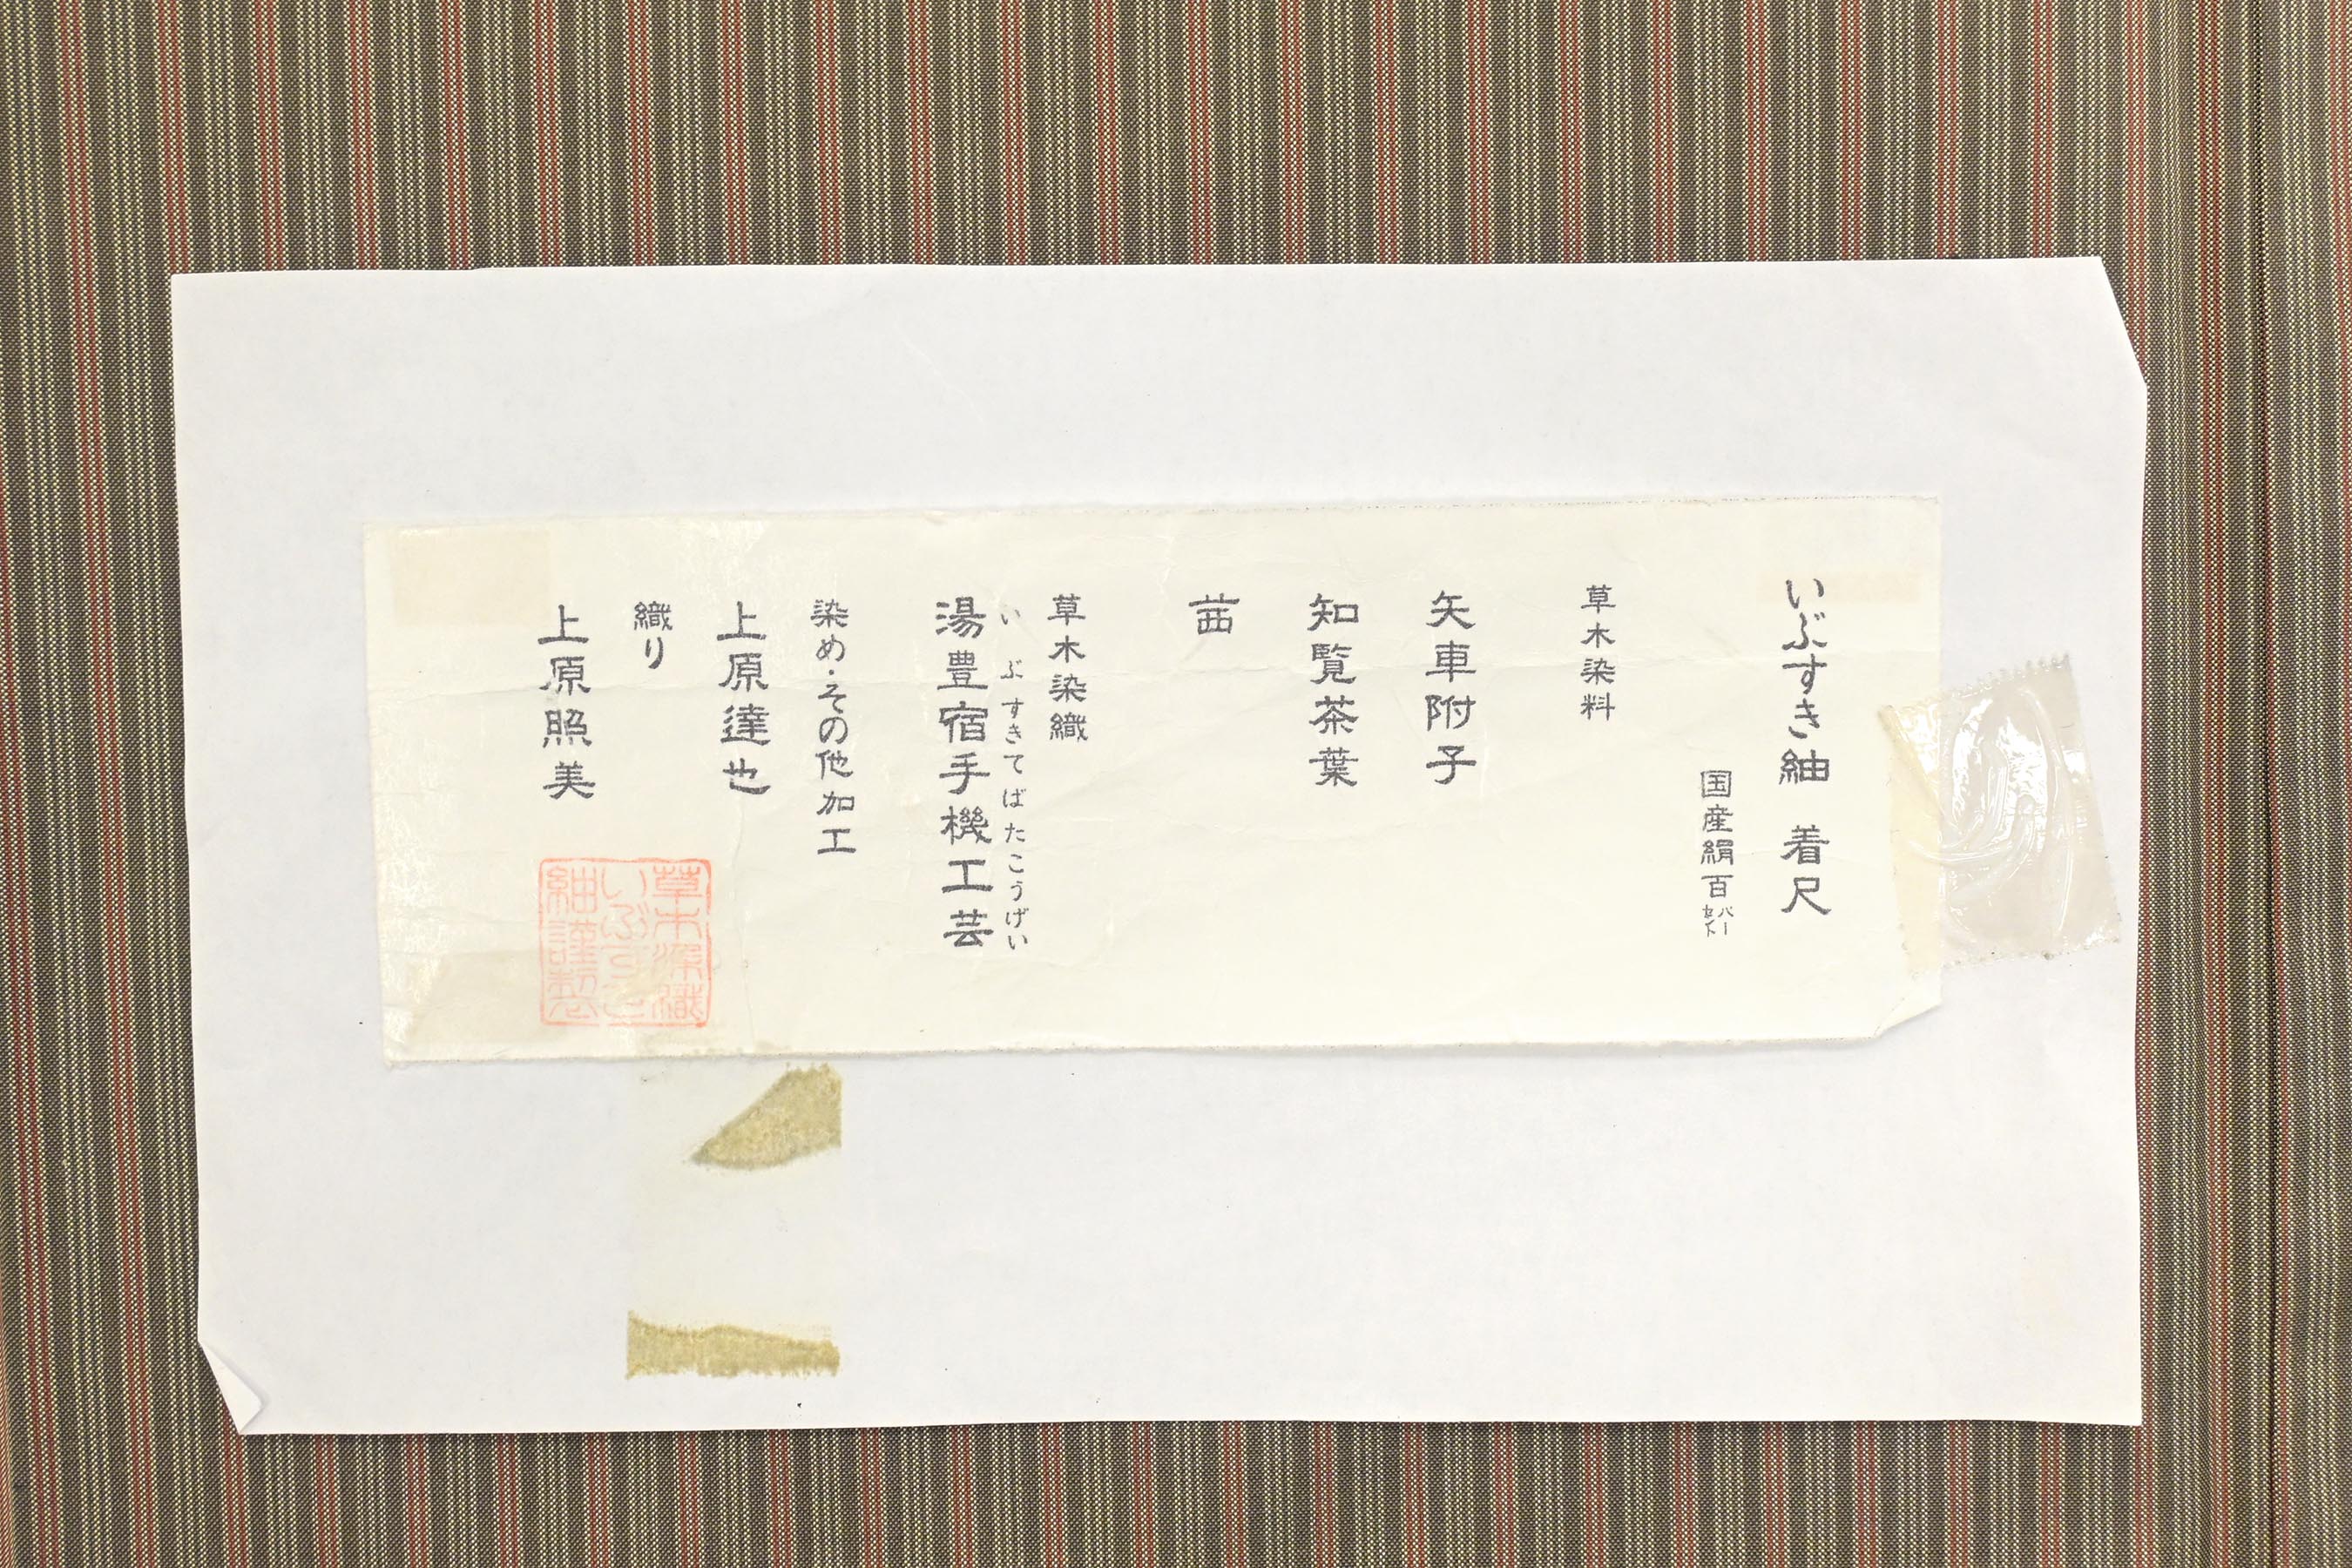 いぶすき紬 着尺
国産絹百パーセント
草木染料
矢車附子
知覧茶葉
茜
草木染織
いぶすきてばたこうげい
湯豊宿手機工芸
染め・その他加工
上原達也
織り
上原照美
草木染織
いぶすき
紬謹製